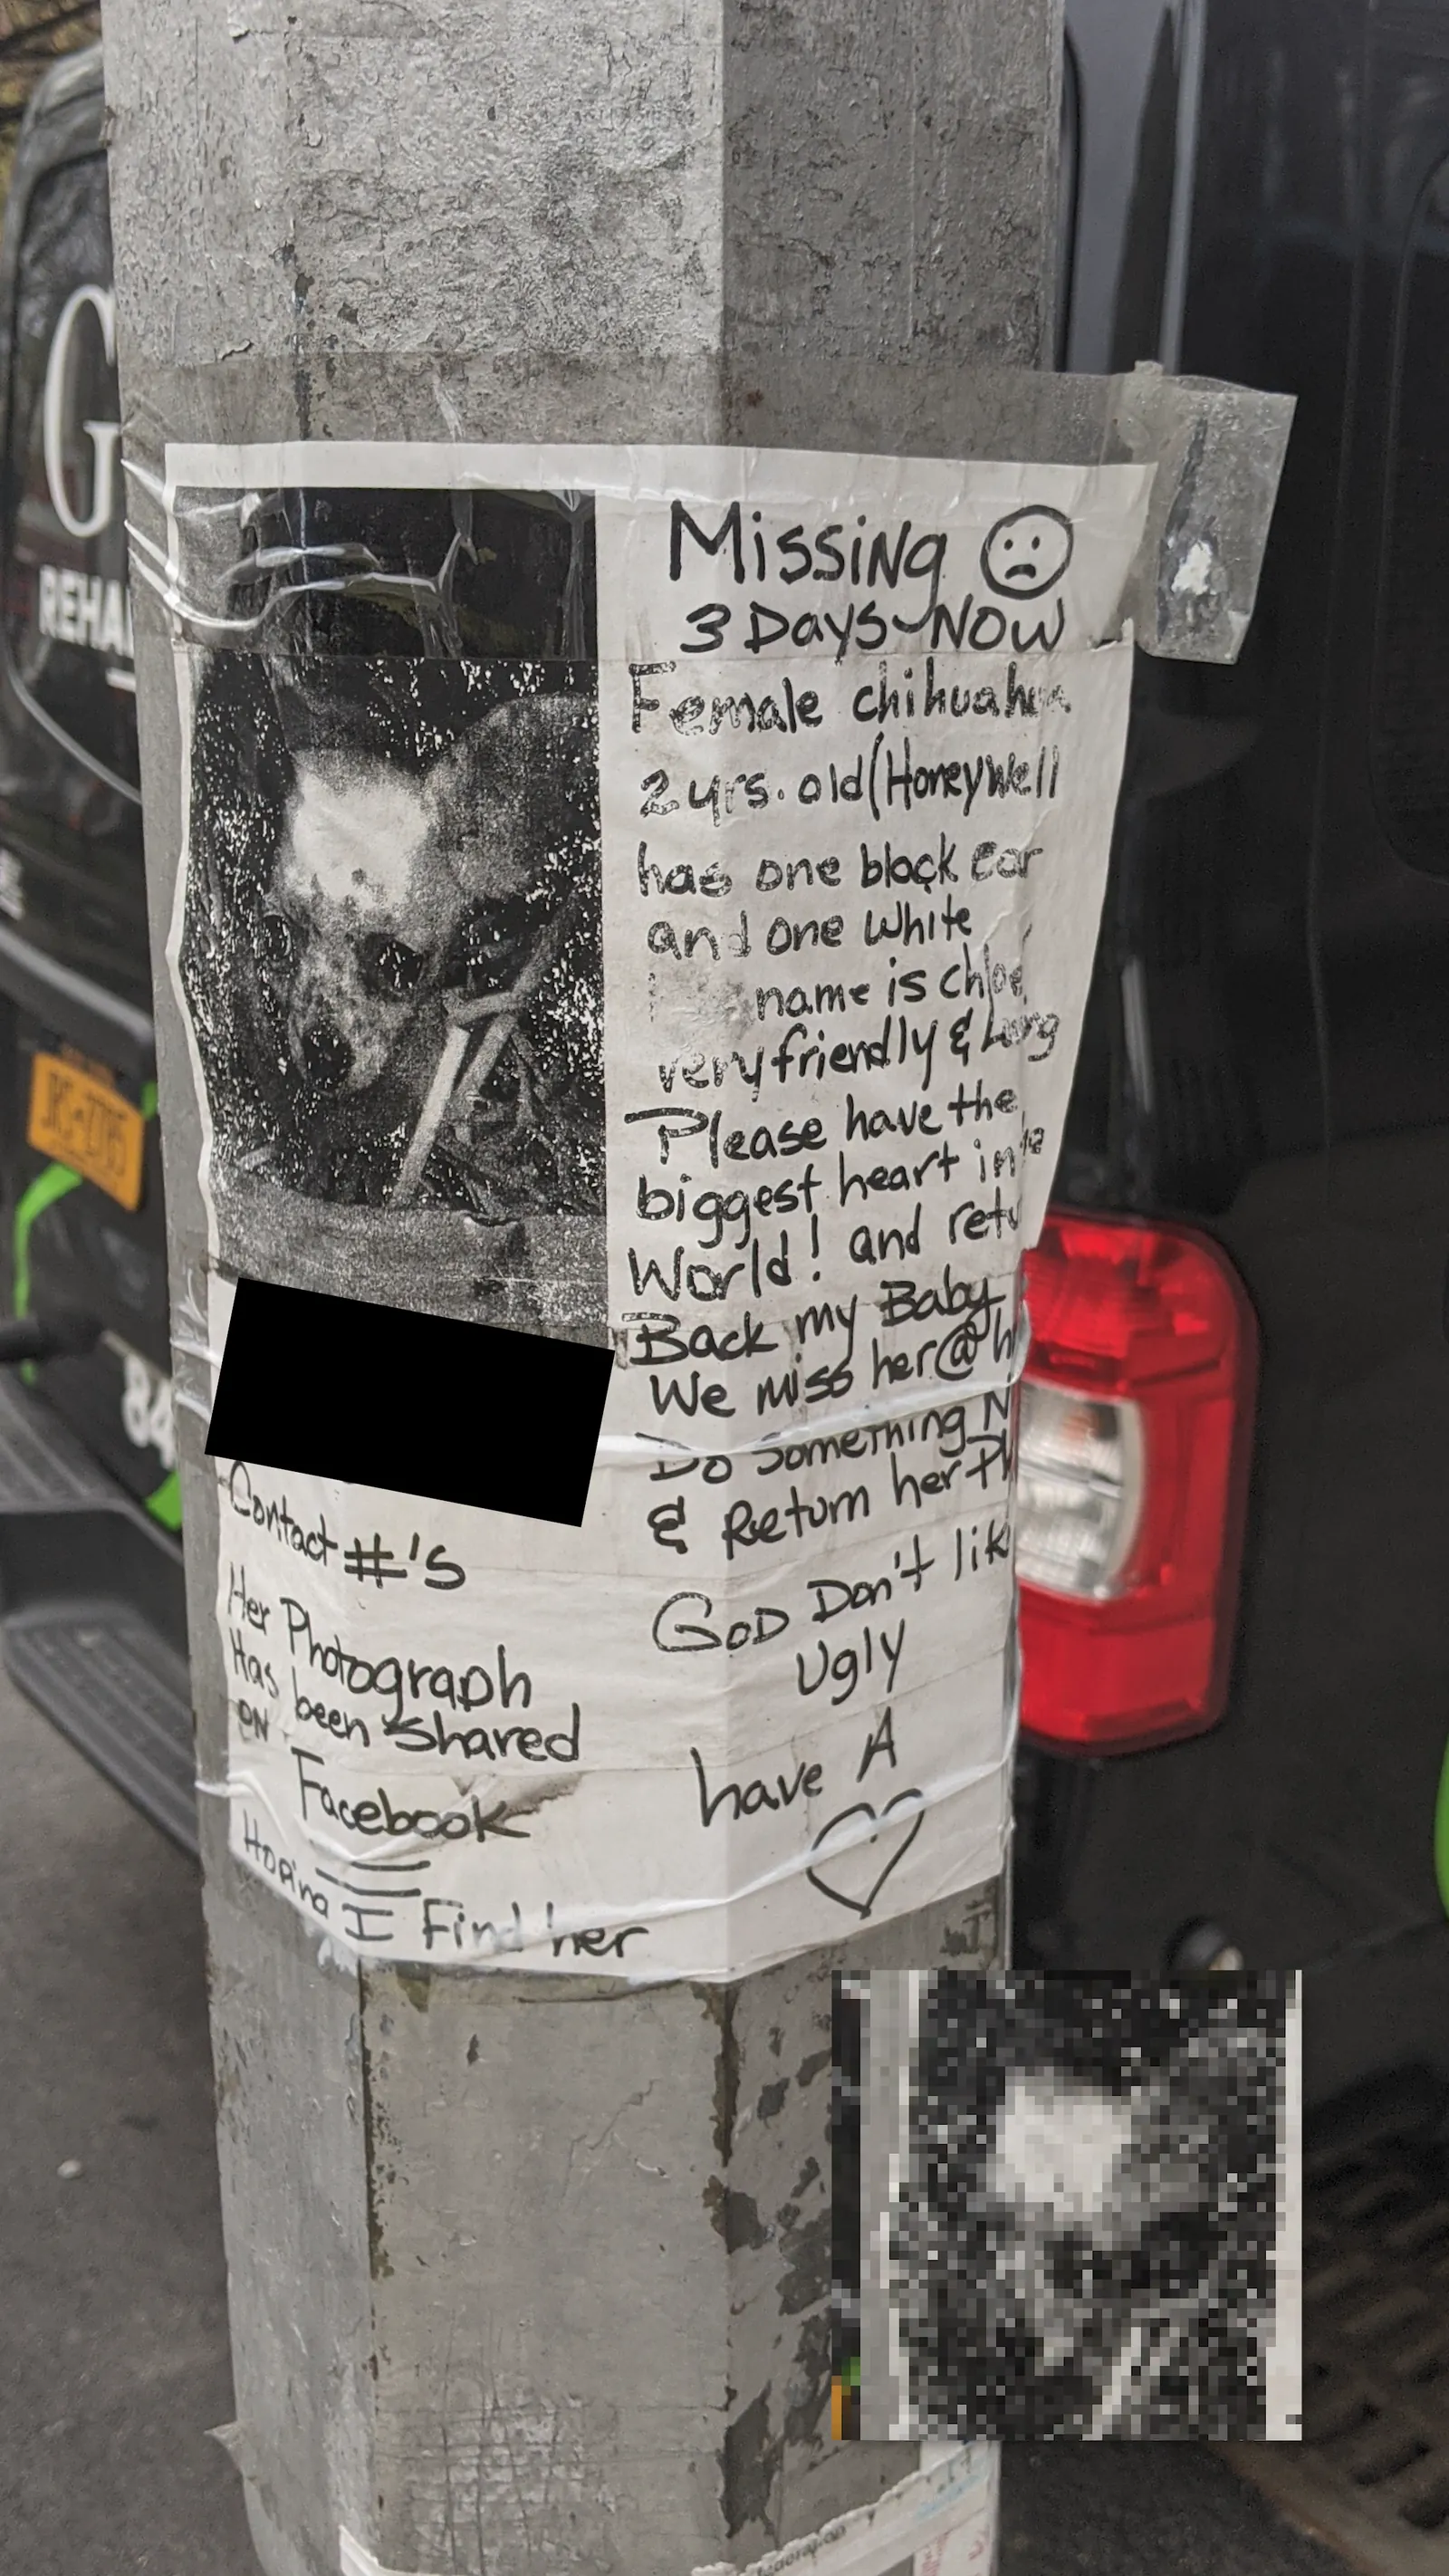 Missing
3 Days NOW
Female chihuahua
2 yrs. old (Honeywell
has one black ear
and one white
name is chloe
very friendly & loving
Please have the
biggest heart in the
World! and retu
Back my Baby
We miss her @ h
Do Something N
& Return her Pl
GOD Don't lik
Ugly
have A
Contact #'s
Her Photograph
Has been Shared
ON
Facebook
Hoping
I Find her
G
REHA
84